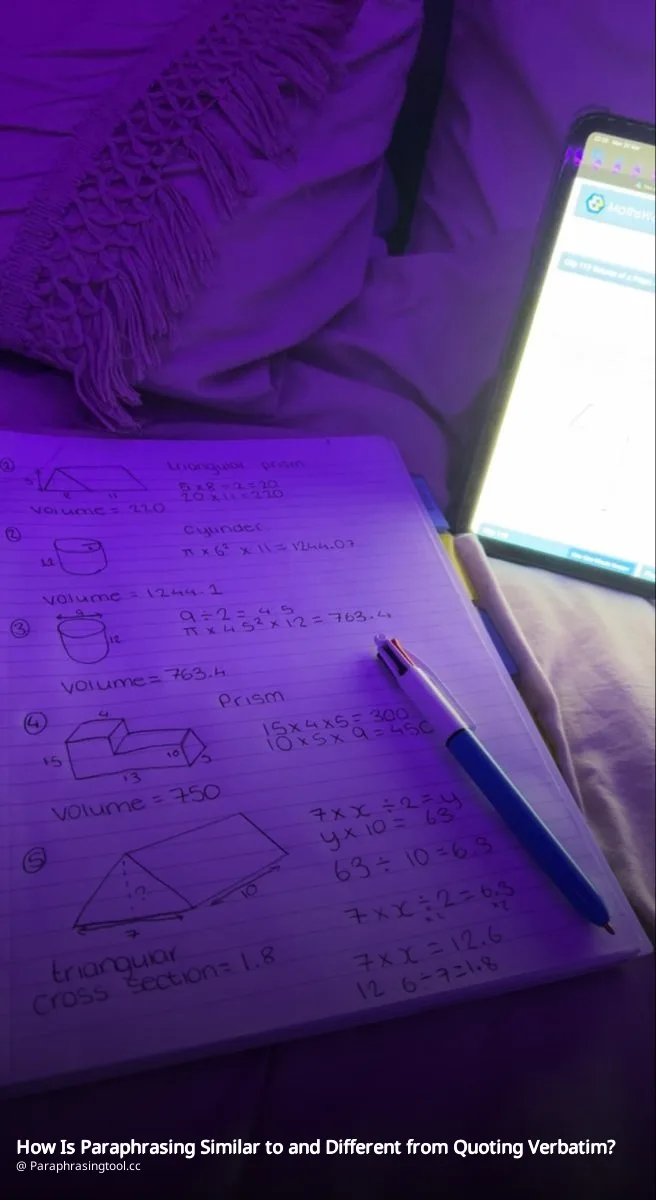 ①
5
8
11
triangular prism
5 x 8 ÷ 2 = 20
20 x 11 = 220
volume = 220
②
cylinder
π x 6² x 11 = 1244.07
volume = 1244.1
③
9
12
9 ÷ 2 = 4.5
π x 4.5² x 12 = 763.4
volume = 763.4
④
Prism
4
15
10
5
13
15 x 4 x 5 = 300
10 x 5 x 9 = 450
volume = 750
⑤
?
10
7
7 x x ÷ 2 = y
y x 10 = 63
63 ÷ 10 = 6.3
7 x x ÷ 2 = 6.3
x2 x2
7 x x = 12.6
12.6 ÷ 7 = 1.8
triangular
cross section = 1.8
How Is Paraphrasing Similar to and Different from Quoting Verbatim?
@ Paraphrasingtool.cc